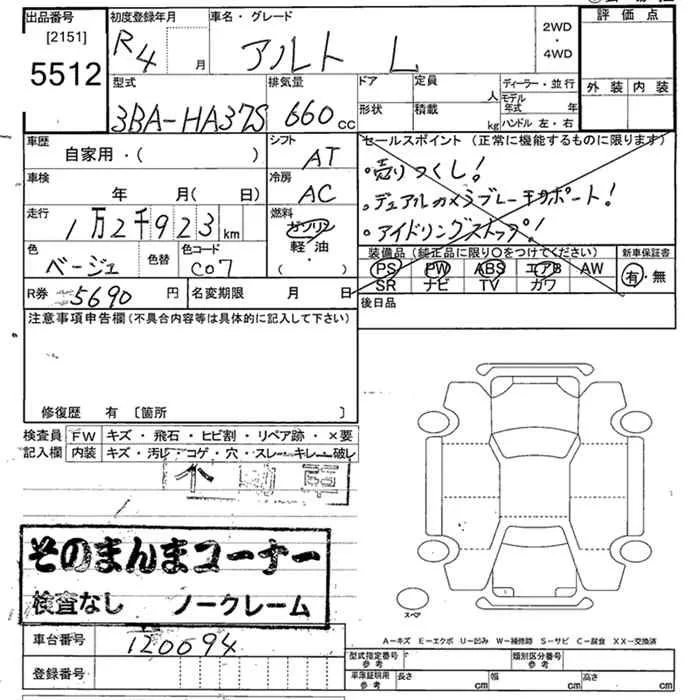 出品番号 初度登録年月 車名・グレード 評価点
[2151]
5512
R4 月 アルト L 2WD・4WD
外装 内装
型式 排気量 ドア 定員 人 ディーラー・並行
3BA-HA37S 660cc 形状 積載 kg モデル年式 年
ハンドル 左・右
車歴 シフト セールスポイント(正常に機能するものに限ります)
自家用・( ) AT
・売りつくし!
車検 冷房
年 月( 日) AC
・デュアルカメラブレーキサポート!
走行 燃料
1万2千923km ガソリン
・アイドリングストップ!
軽・油
・( )
色 色替 色コード
ベージュ C07
装備品(純正品に限り○をつけてください) 新車保証書
PS PW ABS エアB AW 有・無
SR ナビ TV カワ
R券 5690円 名変期限 月 日
後日品
注意事項申告欄(不具合内容等は具体的に記入して下さい)
修復歴 有 〔箇所 〕
検査員 FW キズ・飛石・ヒビ割・リペア跡・×要
記入欄 内装 キズ・汚れ・コゲ・穴・スレ・キレ・破レ
そのまんまコーナー
検査なし ノークレーム
スペア
A-キズ E-エクボ U-凹み W-補修跡 S-サビ C-腐食 XX-交換済
車台番号 120694
型式指定番号 類別区分番号
参考 参考
登録番号
車庫証明用 長さ cm 幅 cm 高さ cm
参考